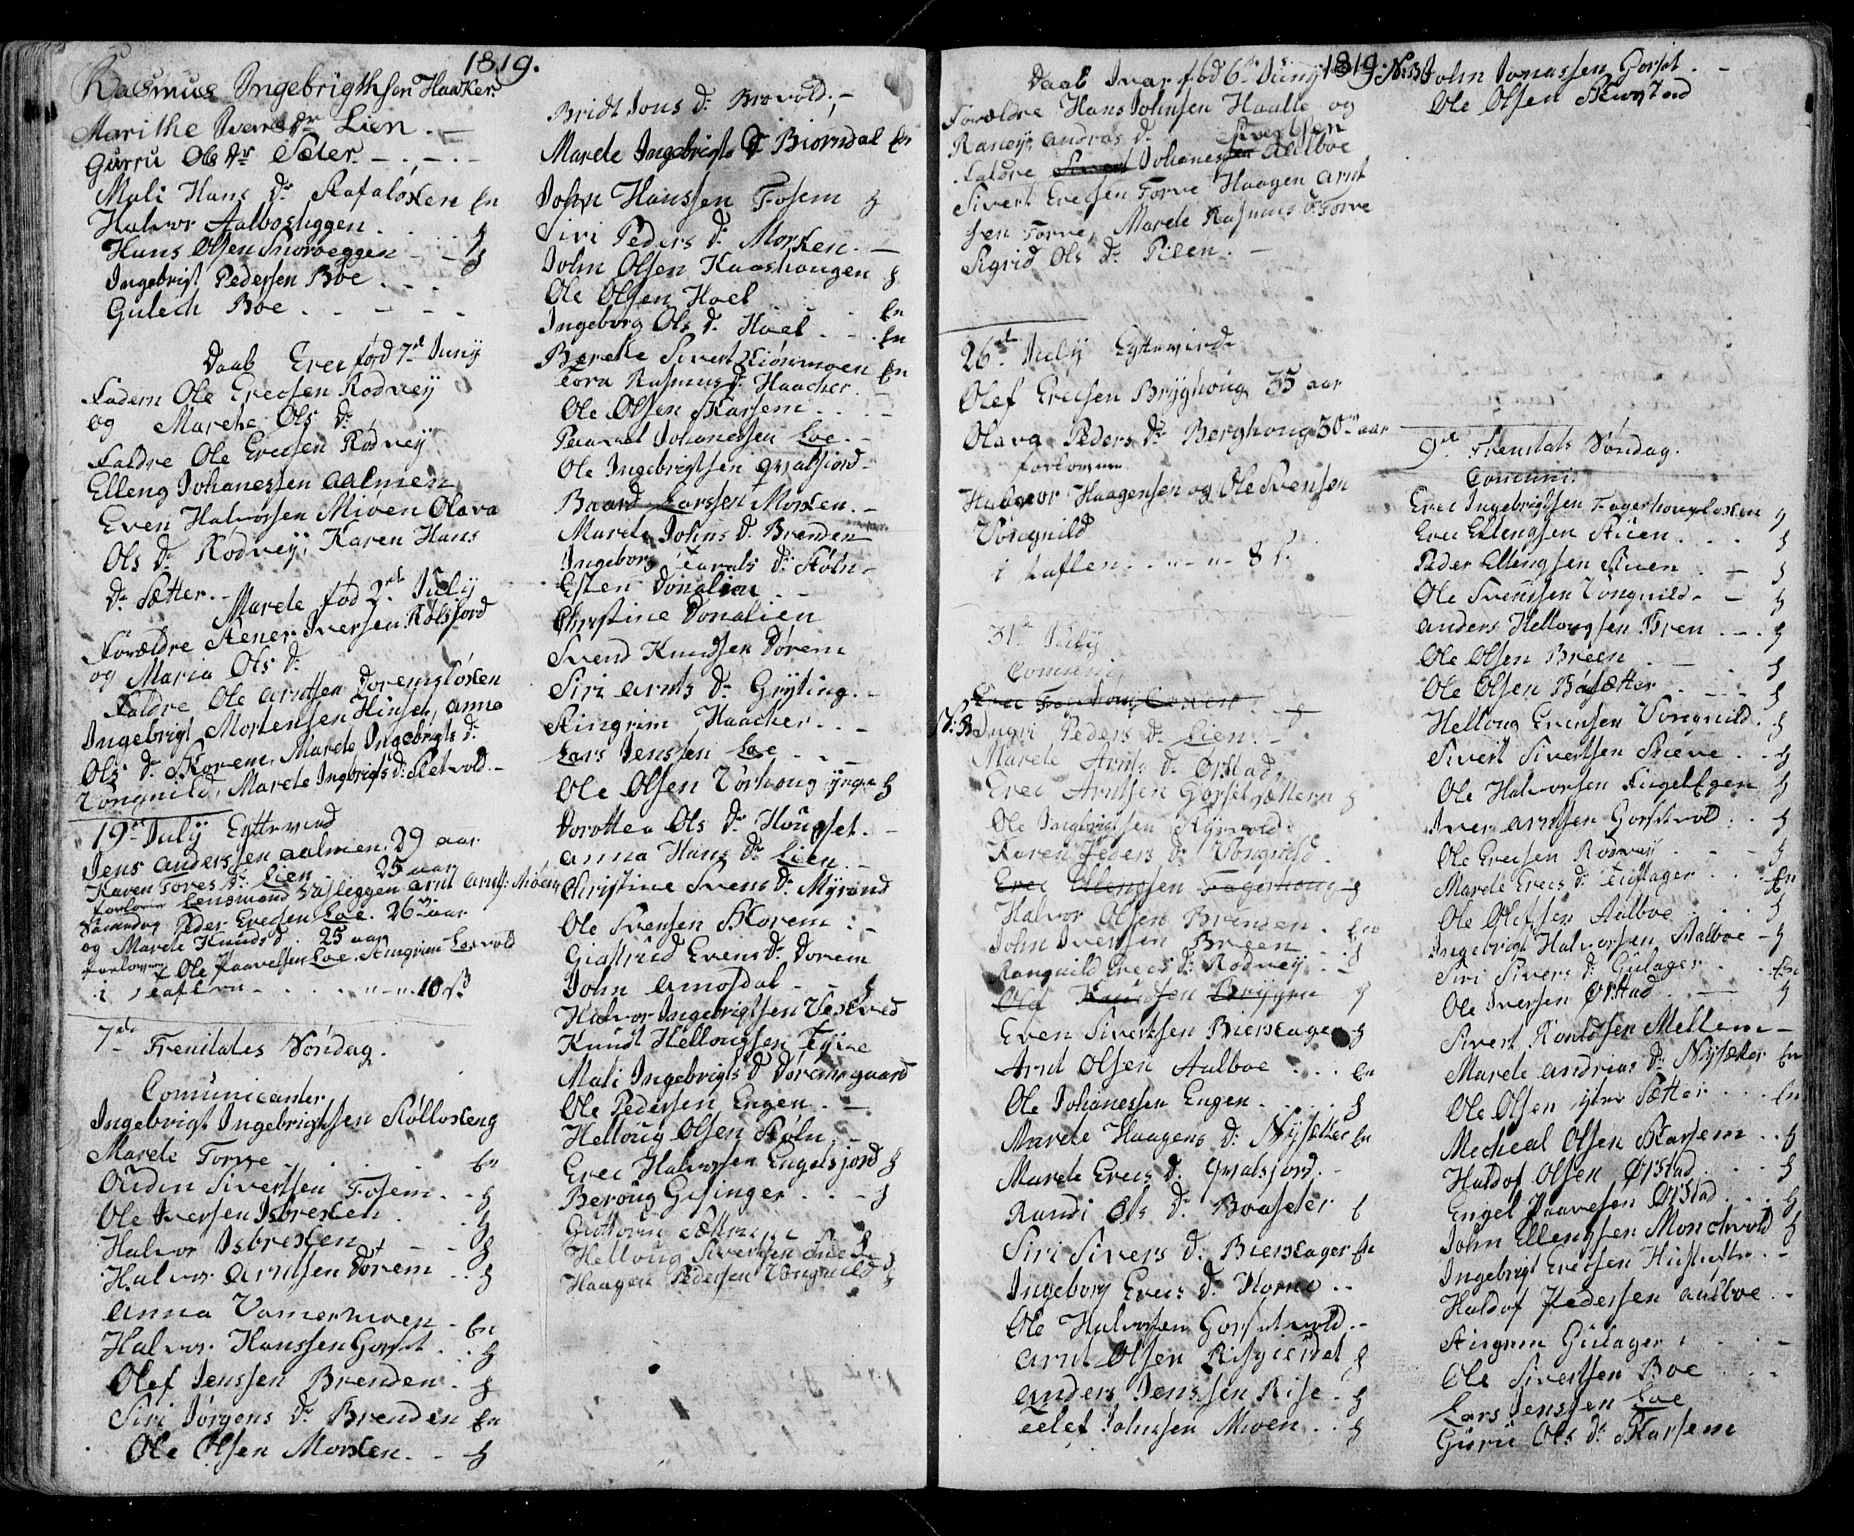 1819.
Rasmus Ingebrigthsen Haaker
Marithe Ivers Dr Lien . –
Gurru Ols Dr Sæter – . – . –
Mali Hans Dr Skafaløkken En
Halvor Aalbosliggen . . . . H
Hans Olsen Snoroeggen – – H
Ingebrigt Pedersen Boe . – .
Gulech Boe . – – – –
Daab Erec fød 7de Juny
Fadern Ole Erecsen Rodvey
og Marete Ols Dr
Faldre Ole Erecsen Rodvey
Elleng Johanessen Aalmen
Even Halvorsen Mioen Olava
Ols Dr Rodvey, Karen Hans
Dr Sætter. –
Marete fød 2de July
Forældre Stener Iversen Kolsjord
og Maria Ols Dr
Faldre Ole Arntsen Doremsløkken
Ingebrigt Mortensen Hinset, Anne
Ols Dr Skorem, Marete Ingebrigts Dr
Vongnild, Marete Ingbrigts Dr Sletvold –
19de July Egteviud
Jens Anderssen Aalmen 29 aar
Karen Tores Dr Lien . 25 aar
forlover Lensmand Vasleggen Arnt Arnts: Mioen
Samedag Peder Erecsen Loe . 26 aar
og Marete Knuds D . 25 aar
forlover Ole Paavelsen Loe . Stengrim Losvold
i Taflen . . . . . . 10 s
7de Trenitates Søndag.
Comunicanter
Ingebrigt Ingebrigtsen Stølloskeng
Marete Torve . . . . . En
Ouden Sivertsen Fosem . . H
Ole Iversen Isbrecken . . H
Halvor Isbrecken . – – H
Halvor Arntsen Dorem . . H
Anna Vamermoen . En
Halvor Hanssen Gorset . . H
Olef Jenssen Brenden . H
Siri Jørgens Dr Brenden En
Ole Olsen Morken . – H
Bridt Jons Dr Brovold . –
Marete Ingebrigts Dr Biørndal En
John Hanssen Fosem H
Siri Peders Dr Morken . –
John Olsen Kaashaugen H
Ole Olsen Hoel . . .
Ingeborg Ols Dr Hoel . . En
Berette Sivert Kiønmoen En
Tora Rasmus Dr Haacher
Ole Olsen Skarsem . . .
Paavel Johanessen Loe . –
Ole Ingebrigtsen Gjalsjord –
Baard Larssen Morken . –
Marete Johns Dr Brenden
Ingeborg Taralds Dr Støln –
Esten Donalien . –
Christine Donalien
Svend Knudsen Dørem
Siri Arnts Dr Gryting . –
Stingrim Haacher . . .
Lars Jenssen Loe . . –
Ole Olsen Vorhoug yngre H
Dorottea Ols Dr Hougset . –
Anna Hans Dr Lien . –
Christine Svens Dr Myrand
Ole Svensen Skorem . –
Giøttrud Evens Dr Dorem
John Amosdal . – – H
Halvor Ingebrigtsen Vesleved
Knudt Hellougsen Tyve
Mali Ingebrigts D Doremsgaard
Ole Pedersen Engen . –
Helloug Olsen Støln . –
Erec Halvorsen Engelsjord H
Beroug Gisinger . . – H
Guttorm Sættem . .
Helloug Sivertsen . . H
Haagen Pedersen Vongnild H
1819
Daab Ivar fød 6te Juny
Forældre Hans Johnsen Haalle og
Raney Andras Dr Sivertsen
Faldre Sivert Johanessen Aalboe
Sivert Erecsen Torve Haagen Arnt
sen Torve, Marete Rasmus Dr Torve
Sigrid Ols Dr Pleen . –
26de July Egteviede
Olef Erecsen Bryghoug 35 aar
Olava Peders Dr Berghoug 30 aar
forlovere
Haagor Haagensen og Ole Svensen
Vongnild
i taflen . . . . . 8 s.
31te July
Comuni
Erec Fagerhougløkken . – H
N:B Ingri Peders Dr Lien . –
Marete Arnts Dr Ørstad
Erec Arntsen Gorsetsættern H
Ole Ingebrigtsen Myrvold .
Karen Peders Dr Vongnild .
Erec Ellengsen Fagerhoug – H
Halvor Olsen Brenden . En
John Iversen Breen . . H
Rangnild Erecs Dr Rodvey . –
Olef Knudsen Bryggen H
Even Sivertsen Bierslager H
Arnt Olsen Aalboe . . . En
Ole Johanessen Engen . . . H
Marete Haagens Dr Nysetter En
Marete Erecs Dr Gjalsjord . –
Randi Ols Dr Boaseter E
Siri Sivers Dr Bierslager En
Ingeborg Erecs Dr Horne . –
Ole Halvorsen Gorsetvold . –
Arnt Olsen Risgierdet H
Anders Jenssen Rise . – H
Telef Johnsen Mioen . . H
N:B John Jonassen Gorset . –
Ole Olsen Skarstad
9de Trenitats Søndag.
Comuni:
Erec Ingebrigtsen Fagerhougløken H
Erec Ellengsen Stuen . . . H
Peder Ellengsen Stuen . – H
Ole Svenssen Vongnild . – H
Anders Hellougsen Breen . – H
Ole Olsen Breen . – . H
Ole Olsen Boasætter . . . H
Helloug Evensen Vongnild . H
Sivert Sivertsen Stueve . . H
Ole Halvorsen Engelsgen H
Iver Arntsen Gorsetvold . . H
Ole Erecsen Rodvey . – – H
Marete Erecs Dr Teslager . . En
Ole Olefsen Aalboe . . . H
Ingebrigt Halvorsen Aalboe – H
Siri Sivers Dr Gulager . . . En
Ole Iversen Ørstad . – H
Sivert Roaldsen Mellem –
Marete Andrias Dr Nysætter En
Ole Olsen ytre Sætter . . . En
Mecheal Olsen Skarsem . . H
Haldof Olsen Ørstad . . . H
Engel Paavesen Ørstad . . . H
John Ellengsen Monchvold H
Ingebrigt Erecsen . –
Haldof Pedersen Aalboe . –
Stingrim Gulager . . . –
Ole Sivertsen Boe
Lars Jenssen Loe
Guru Ols Dr Skarsem